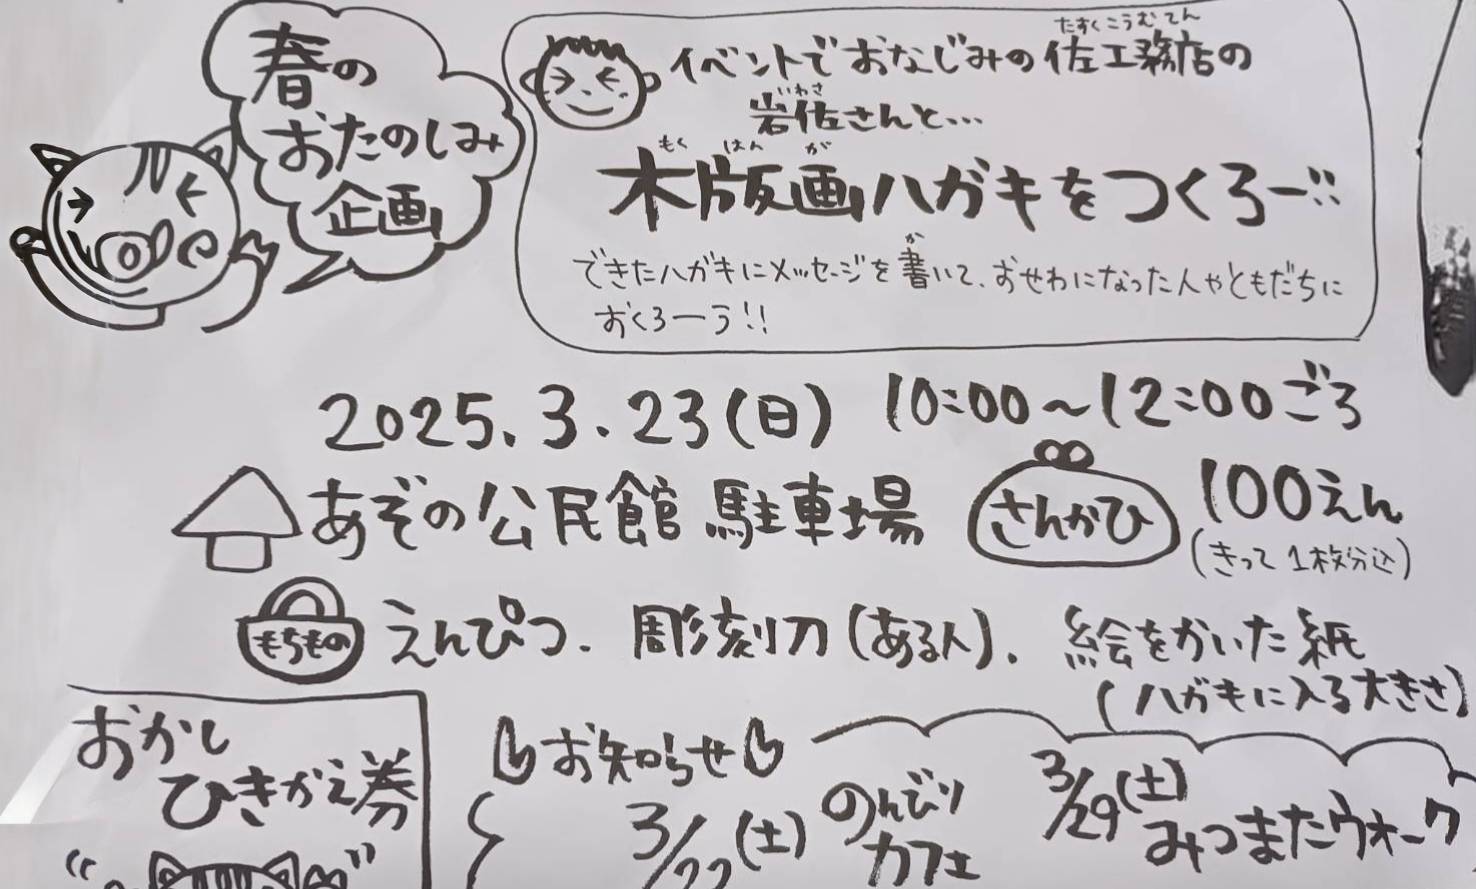 春の
おたのしみ
企画
イベントでおなじみの佐工務店の
たすくこうむてん
岩佐さんと...
いわさ
木版画ハガキをつくろー!!
もくはんが
できたハガキにメッセージを書いて、おせわになった人やともだちに
か
おくろーう!!
2025.3.23(日) 10:00〜12:00ごろ
あぞの公民館 駐車場
さんかひ 100えん
(きって1枚分込)
もちもの えんぴつ、彫刻刀(ある人)、絵をかいた紙
(ハガキに入る大きさ)
おかし
ひきかえ券
お知らせ
3/22(土) のんびり
カフェ
3/29(土)
みつまたウォーク